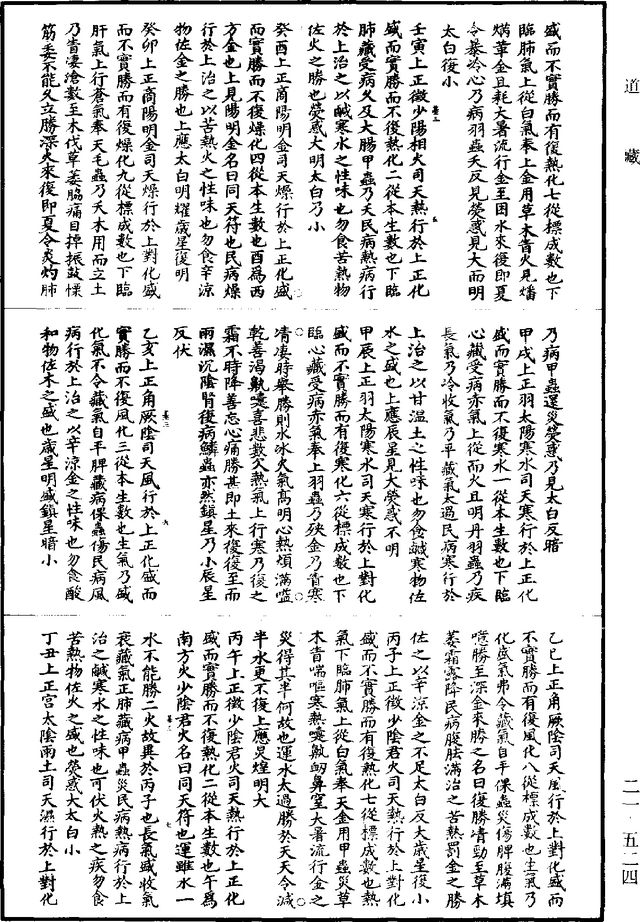 盛而不實勝而有復熱化七從標成數也下
臨肺氣上從白氣奉上金用草木眚火見燔
焫革金且耗大暑流行金至困水來復即夏
令暴冷心乃病羽蟲夭反見熒惑見大而明
太白復小
壬寅上正徵少陽相火司天熱行於上正化
盛而實勝而不復熱化二從本生數也下臨
肺藏受病久及大腸甲蟲乃夭民病熱病行
於上治之以鹹寒水之性味也勿食苦熱物
佐火之勝也熒惑大明太白乃小
癸酉上正商陽明金司天燥行於上正化盛
而實勝而不復燥化四從本生數也酉為西
方金也上見陽明金名曰同天符也民病燥
行於上治之以苦熱火之性味也勿食辛涼
物佐金之勝也上應太白明耀歲星復明
癸卯上正商陽明金司天燥行於上對化盛
而不實勝而有復燥化九從標成數也下臨
肝氣上行蒼氣奉天毛蟲乃夭木用而立土
乃眚淒滄數至木伐草萎脇痛目掉振鼓慄
筋委不能久立勝深火來復即夏令炎灼肺
乃病甲蟲還災熒惑乃見太白反暗
甲戌上正羽太陽寒水司天寒行於上正化
盛而實勝而不復寒水一從本生數也下臨
心藏受病亦氣上從而火且明丹羽蟲乃疾
長氣乃冷收氣乃平藏氣太過民病寒行於
上治之以甘溫土之性味也勿食鹹寒物佐
水之盛也上應辰星見大熒惑不明
甲辰上正羽太陽寒水司天寒行於上對化
盛而不實勝而有復寒化六從標成數也下
臨心藏受病亦氣奉上羽蟲乃殃金乃眚寒
凊淒時舉勝則水冰火氣高明心熱煩滿嗌
乾善渴鼽嚏喜悲數欠熱氣上行寒乃復之
霜不時降善忘心痛勝甚即土來復復至而
雨濕沉陰腎復病鱗蟲亦然鎮星乃小辰星
反伏
乙亥上正角厥陰司天風行於上正化盛而
實勝而不復風化三從本生數也生氣乃盛
化氣不令藏氣自平脾藏病倮蟲傷民病風
病行於上治之以辛涼金之性味也勿食酸
和物佐木之盛也歲星明盛鎮星暗小
乙巳上正角厥陰司天風行於上對化盛而
不實勝而有復風化八從標成數也生氣乃
化盛氣弗令藏氣自平倮蟲災傷脾腹滿填
噎勝至深金來勝之名曰復勝凊勁至草木
萎霜露降民病膜胠滿治之苦熱罰金之勝
佐之以辛涼金之不足太白反大歲星復小
丙子上正徵少陰君火司天熱行於上對化
盛而不實勝而有復熱化七從標成數也
氣下臨肺氣上從白氣奉天金用甲蟲災草
木眚喘嘔寒熱嚏鼽衂鼻窒大暑流行金之
災得其半何故也運水太過勝於天天令減
半水更不復上應災煌明大
丙午上正徵少陰君火司天熱行於上正化
盛而實勝而不復熱化二從本生數也午為
南方火少陰君火名曰同天符也運雖水一
水不能勝二火故異於丙子也長氣盛收氣
衰藏氣正肺藏病甲蟲災民病熱病行於上
治之鹹寒水之性味也可伏火熱之疾勿食
苦熱物佐火之盛也熒惑大太白小
丁丑上正宮太陰雨土司天濕行於上對化
道藏
二一·五二四